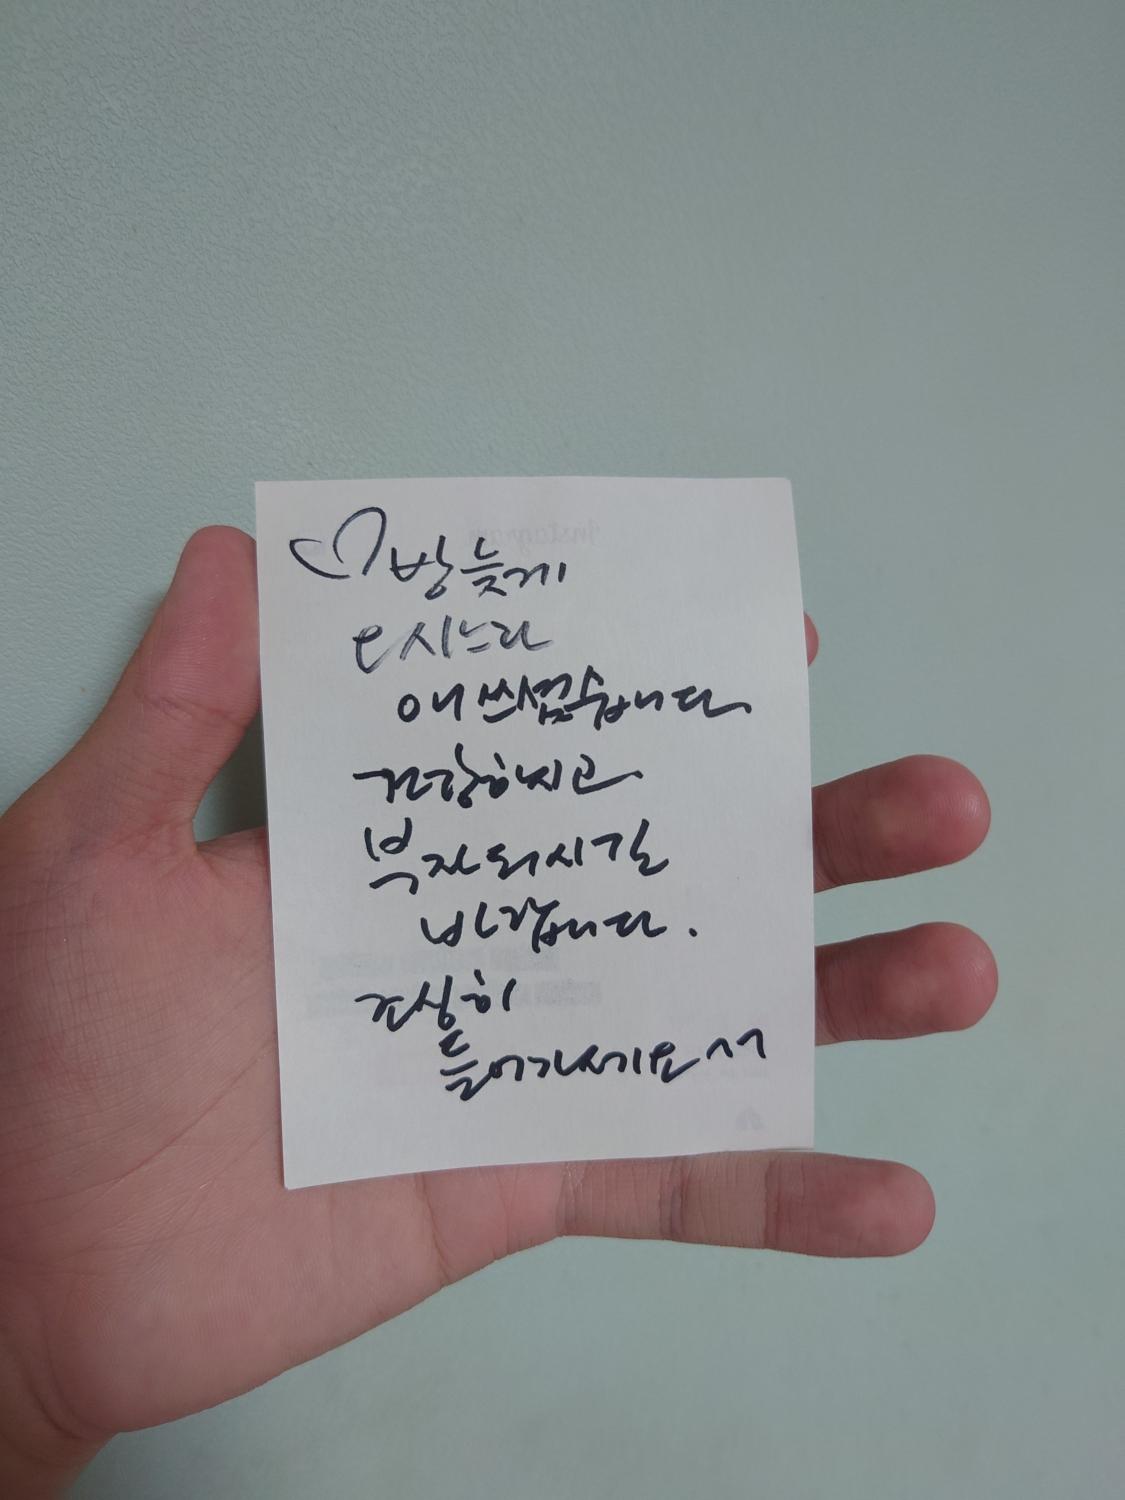 ♡ 밤늦게
오시느라
애쓰셨습니다
건강하시고
부자되시길
바랍니다.
조심히
들어가세요^^